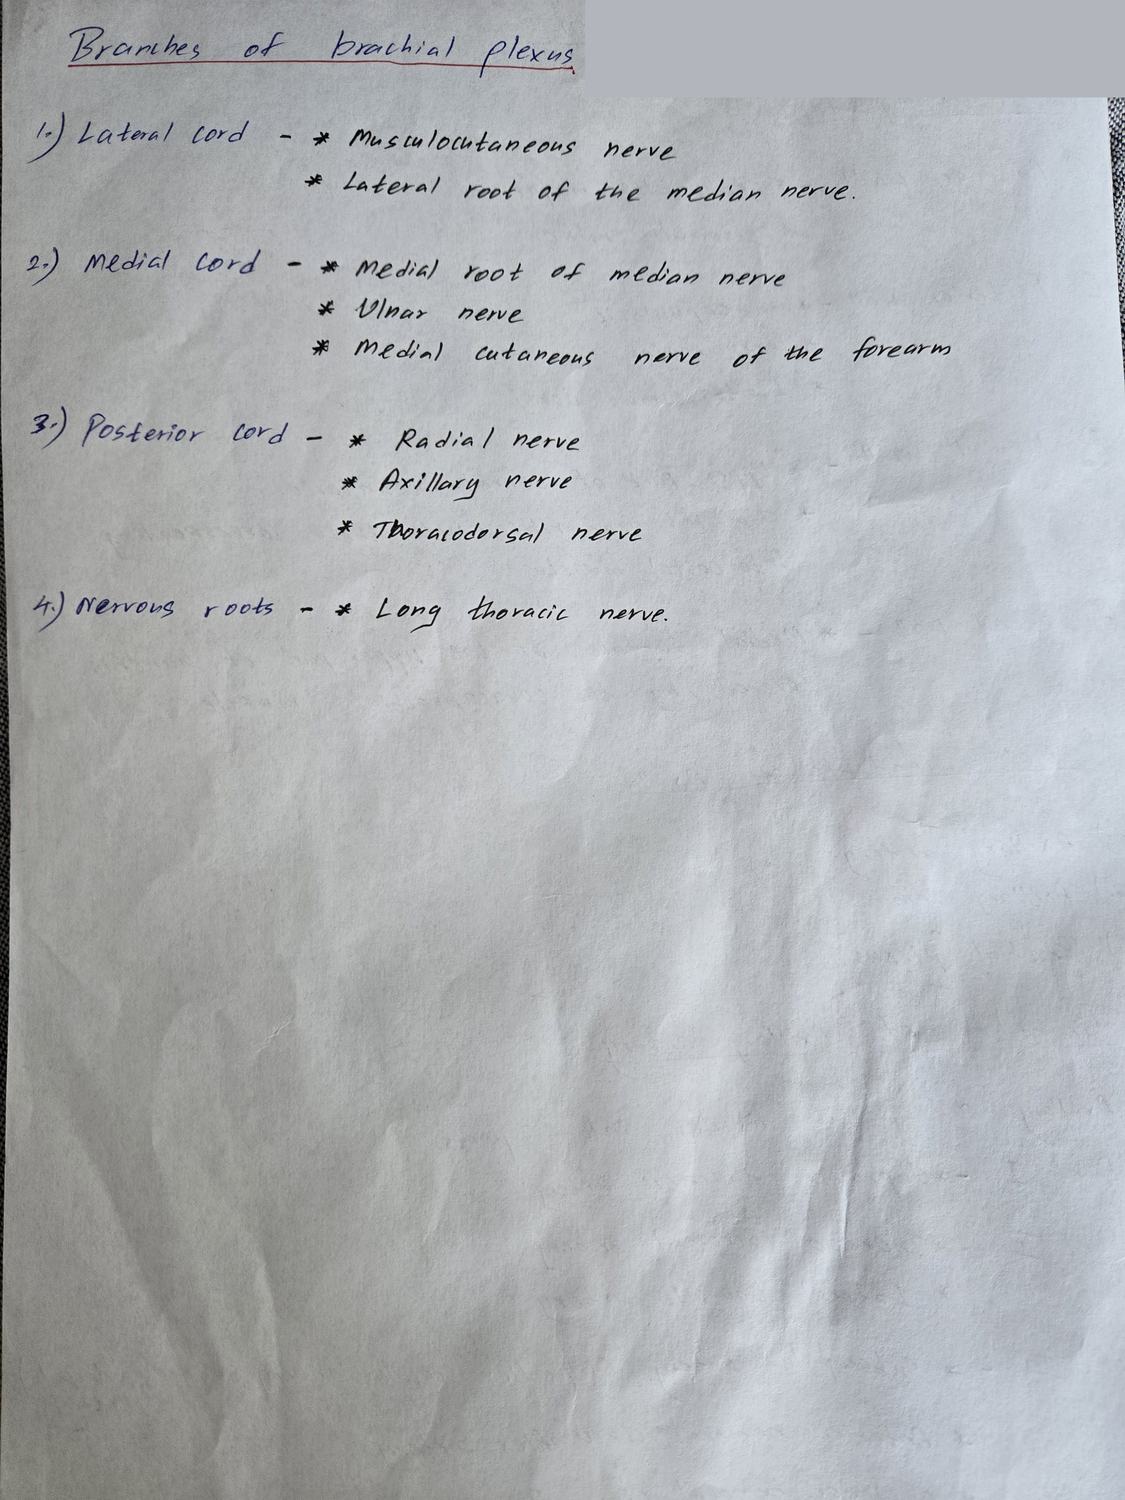 Branches of brachial plexus
1.) Lateral cord - * Musculocutaneous nerve
* Lateral root of the median nerve.
2.) Medial cord - * Medial root of median nerve
* Ulnar nerve
* Medial cutaneous nerve of the forearm
3.) Posterior cord - * Radial nerve
* Axillary nerve
* Thoracodorsal nerve
4.) Nervous roots - * Long thoracic nerve.